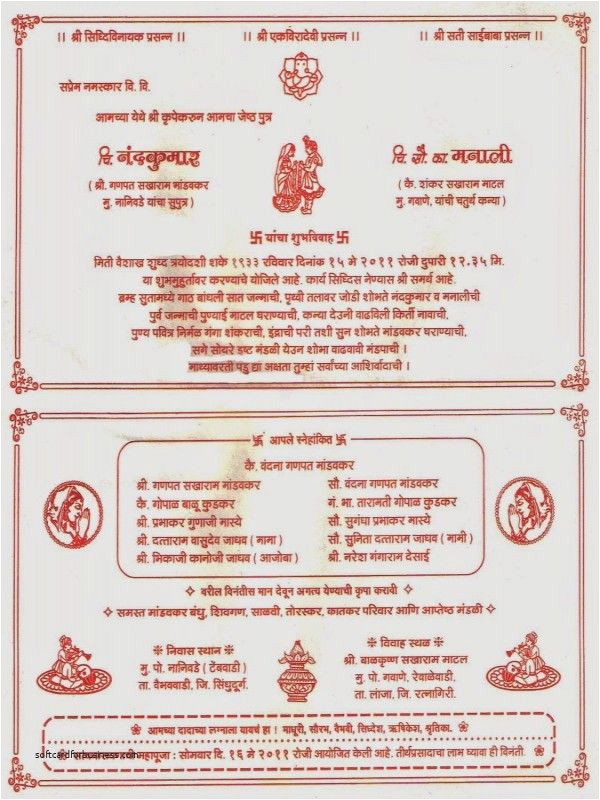 ।। श्री सिध्दिविनायक प्रसन्न ।। ।। श्री एकविरादेवी प्रसन्न ।। ।। श्री सती साईबाबा प्रसन्न ।।
सप्रेम नमस्कार वि. वि.
आमच्या येथे श्री कृपेकरुन आमचा जेष्ठ पुत्र
चि. नंदकुमार चि. सौ. का. मनाली
( श्री. गणपत सखाराम मांडवकर ( कै. शंकर सखाराम माटल
मु. नानिवडे यांचा सुपुत्र ) मु. गवाणे, यांची चतुर्थ कन्या )
卐 यांचा शुभविवाह 卐
मिती वैशाख शुध्द त्रयोदशी शके १९३३ रविवार दिनांक १५ मे २०११ रोजी दुपारी १२.३५ मि.
या शुभमुहुर्तावर करण्याचे योजिले आहे. कार्य सिध्दिस नेण्यास श्री समर्थ आहे.
ब्रम्ह सुतामध्ये गाठ बांधली सात जन्माची, पृथ्वी तलावर जोडी शोभते नंदकुमार व मनालीची
पुर्व जन्माची पुण्याई माटल घराण्याची, कन्या देउनी वाढविली किर्ती नावाची.
पुण्य पवित्र निर्मळ गंगा शंकराची, इंद्राची परी तशी सुन शोभते मांडवकर घराण्याची,
सगे सोयरे इष्ट मंडळी येउन शोभा वाढवावी मंडपाची ।
माथ्यावरती पडु द्या अक्षता तुम्हां सर्वांच्या आशिर्वादाची ।
卐 आपले स्नेहांकित 卐
कै. वंदना गणपत मांडवकर
श्री. गणपत सखाराम मांडवकर सौ. वंदना गणपत मांडवकर
कै. गोपाळ बाळू कुडकर गं. भा. तारामती गोपाळ कुडकर
श्री. प्रभाकर गुणाजी मास्ये सौ. सुगंधा प्रभाकर मास्ये
श्री. दत्ताराम वासुदेव जाधव ( मामा ) सौ. सुनिता दत्ताराम जाधव ( मामी )
श्री. भिकाजी कानोजी जाधव ( आजोबा ) श्री. नरेश गंगाराम देसाई
वरील विनंतीस मान देवून अगत्य येण्याची कृपा करावी
समस्त मांडवकर बंधु, शिवगण, साळवी, तोरस्कर, कातकर परिवार आणि आप्तेष्ठ मंडळी
निवास स्थान विवाह स्थळ
मु. पो. नानिवडे ( टेंबवाडी ) श्री. बाळकृष्ण सखाराम माटल
ता. वैभववाडी, जि. सिंधुदुर्ग. मु. पो. गवाणे, रेवाळेवाडी.
ता. लांजा, जि. रत्नागिरी.
आमच्या दादाच्या लग्नाला यायचं हा ! माधूरी, सौरभ, वैभवी, सिध्देश, ऋषिकेश, श्रृतिका.
महापूजा : सोमवार दि. १६ मे २०११ रोजी आयोजित केली आहे. तीर्थप्रसादाचा लाभ घ्यावा ही विनंती.
softcardforbusiness.com